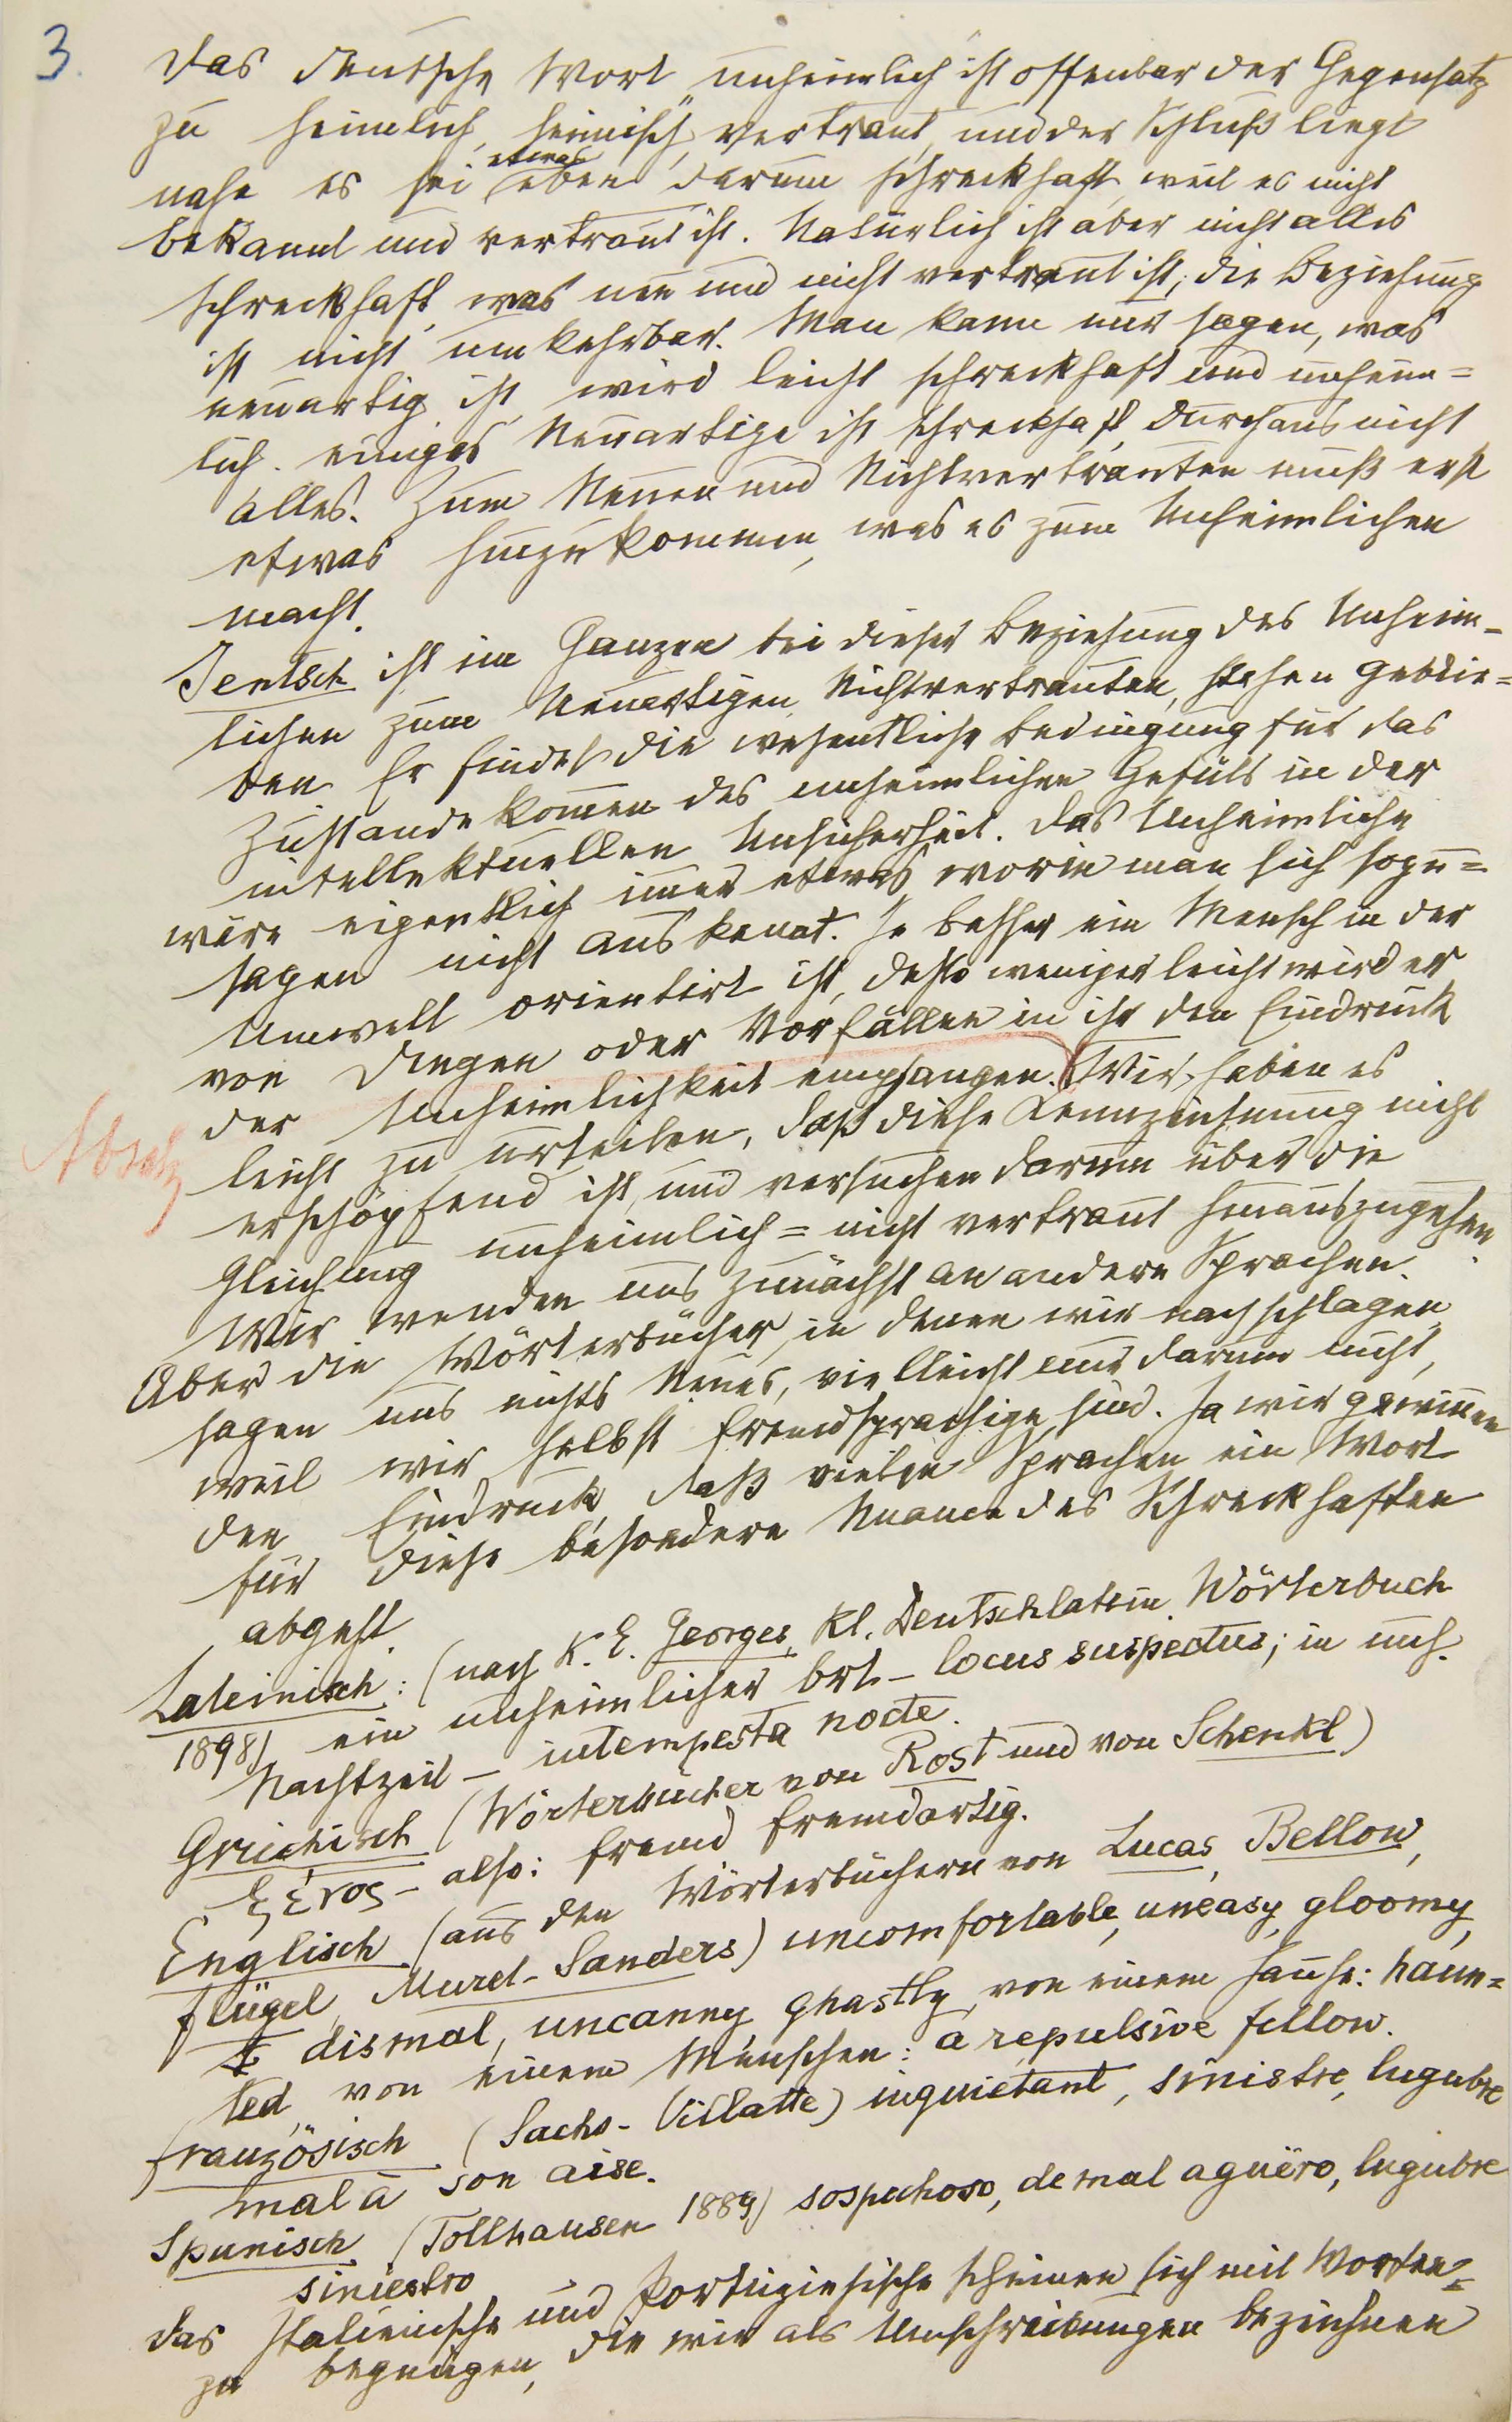 3.
Das deutsche Wort „unheimlich" ist offenbar der Gegensatz
zu heimlich, heimisch, vertraut, und der Schluß liegt
nahe es sei etwas eben darum schreckhaft, weil es nicht
bekannt und vertraut ist. Natürlich ist aber nicht alles
schreckhaft, was neu und nicht vertraut ist; die Beziehung
ist nicht umkehrbar. Man kann nur sagen, was
neuartig ist, wird leicht schreckhaft und unheim=
lich. einiges Neuartige ist schreckhaft, durchaus nicht
alles. Zum Neuen und Nichtvertrauten muß erst
etwas hinzukommen, was es zum Unheimlichen
macht.
Jentsch ist im Ganzen bei dieser Beziehung des Unheim=
lichen zum Neuartigen, Nichtvertrauten, stehen geblie=
ben. Er findet die wesentliche Bedingung für das
Zustandekommen des unheimlichen Gefüls in der
intellektuellen Unsicherheit. Das Unheimliche
wäre eigentlich immer etwas, worin man sich sozu=
sagen nicht auskennt. Je besser ein Mensch in der
Umwelt orientirt ist, desto weniger leicht wird er
von Dingen oder Vorfällen in ihr den Eindruck
der Unheimlichkeit empfangen. Wir haben es
Absatz
leicht zu urteilen, daß diese Kennzeichnung nicht
erschöpfend ist, und versuchen darum über die
Gleichung unheimlich = nicht vertraut hinauszugehen.
Wir wenden uns zunächst an andere Sprachen.
Aber die Wörterbücher, in denen wir nachschlagen,
sagen uns nichts Neues, vielleicht nur darum nicht,
weil wir selbst Fremdsprachige sind. Ja wir gewinnen
den Eindruck, daß vielen Sprachen ein Wort
für diese besondere Nuance des Schreckhaften
abgeht.
Lateinisch: (nach K. E. Georges, Kl. Deutschlatein. Wörterbuch
1898) ein unheimlicher Ort – locus suspectus; in unh.
Nachtzeit – intempesta nocte.
Griechisch (Wörterbücher von Rost und von Schenkl)
ξένος – also: fremd fremdartig.
Englisch (aus den Wörterbüchern von Lucas, Bellow,
Flügel, Muret-Sanders) uncomfortable, uneasy, gloomy,
dismal, uncanny, ghastly, von einem Hause: haun=
ted, von einem Menschen: a repulsive fellow.
Französisch (Sachs-Villatte) inquiétant, sinistre, lugubre
mal à son aise.
Spanisch (Tollhausen 1889) sospechoso, de mal aguëro, lugubre
siniestro
das Italienische und Portugiesische scheinen sich mit Worten
zu begnügen, die wir als Umschreibungen bezeichnen